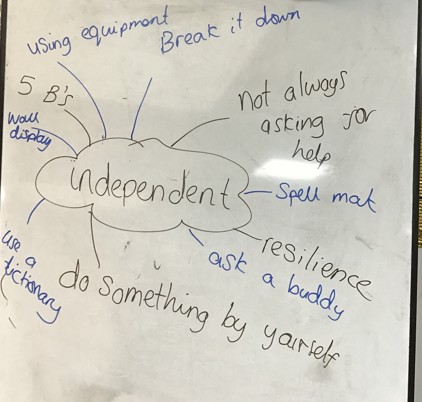 using equipment
Break it down
5 B's
not always
asking for
help
wall
display
independent
Spell mat
resilience
ask a buddy
use a
dictionary
do something by yourself